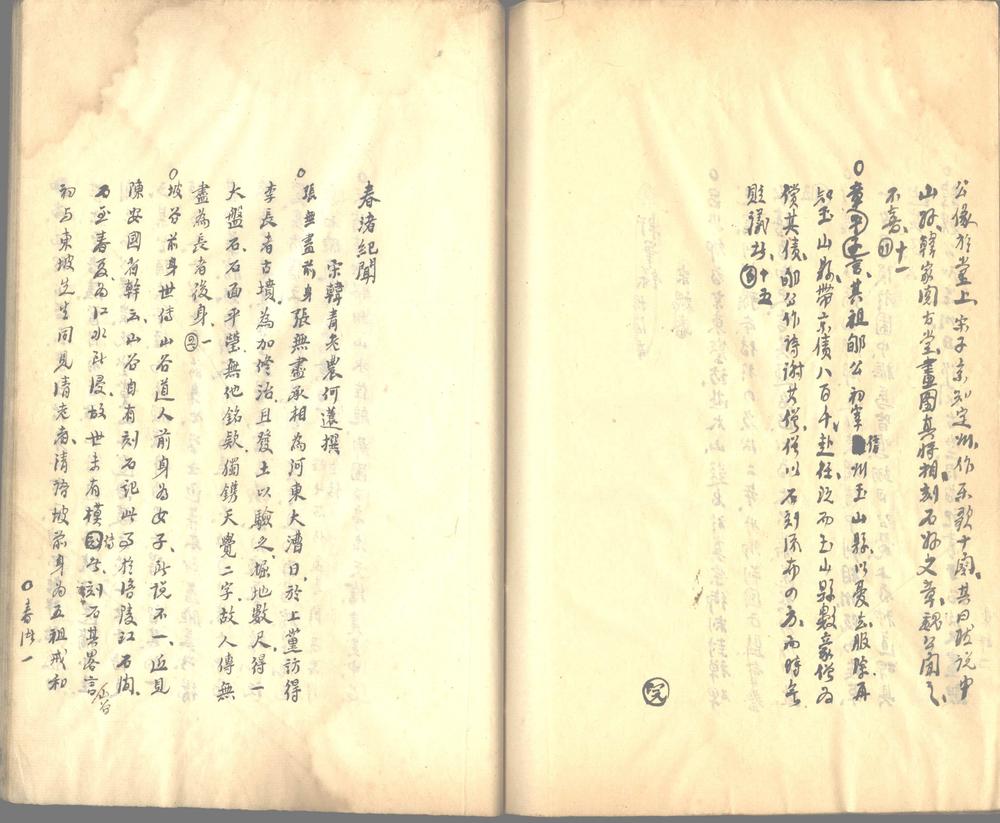 公像於堂上宋子京知定州作乐歌十阕其曰听说中
山好韓家阅古堂畫图真将相刻石好文章魏公闻之
不喜⑪十一
言其祖郇公初宰信州玉山縣以憂去服除再
知玉山縣帶京债八百千赴任既而玉山縣數豪僧为
償其债郇公作诗谢其僧僧以石刻流布四方而时無
貶議故十五
完
春渚紀聞
宋韓青老農何薳撰
張無盡前身張無盡丞相為河東大漕日於上黨訪得
李長者古墳為加修治且發土以驗之掘地數尺得一
大盤石石面平瑩無他銘欵獨鐫天覺二字故人傳無
盡為長者後身一
坡谷前身世传山谷道人前身为女子所说不一近見
陳安國省幹云山谷自有刻石记此事於涪陵江石间
石至春夏为江水所浸故世未有模傳者刻石其畧言
山谷
初与東坡先生同見清老者清語坡前身为五祖戒和
春渚一